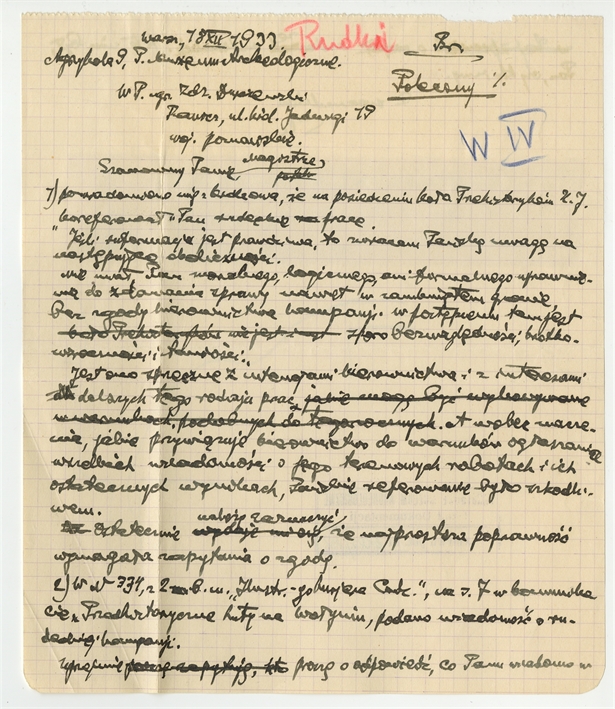 Warsz, 13 XII 1933. Rudki
Agrykola 9, P. Muzeum Archeologiczne.
Pokesny /.
W.P. mgr. Zdz. Durczewski
W IV
ul. król. Jadwigi 19
woj. poznańskie.
Szanowny Panie Magistrze,
1) powiadomiono mię z Krakowa, że na posiedzeniu koła Prehistoryków U. J.
koreferował Pan rudecką pracę.
Jeśli informacja jest prawdziwa, to zwracam Pańską uwagę na
następujące okoliczności.
Nie miał Pan moralnego, logicznego, ani formalnego uprawnie-
nia do zdawania sprawy nawet w zamkniętem gronie,
bez zgody kierownictwa kampanji. W postąpieniu tem jest
sporo bezwzględności, krótko-
wzroczności i
Jest ono sprzeczne z intencjami kierownictwa i z interesami
dalszych tego rodzaju prac, jakie mogą być wykonywane
w warunkach, podobnych do tegorocznych. A wobec znacze-
nia, jakie przywiązuje kierownictwo do warunków ogłaszania
wszelkich wiadomości o jego terenowych robotach i ich
ostatecznych wynikach, Pańskie referowanie było szkodli-
wem.
Ostatecznie należy zaznaczyć, że najprostsza poprawność
wymagała zapytania o zgodę.
2) W № 334, z 2 b. m. "Ilustr. Codz.", na s. 7 w
"Przedhistoryczne huty na Wołyniu", podano wiadomość o ru-
deckiej kampanji.
Uprzejmie proszę o odpowiedź, co Panu wiadomo w